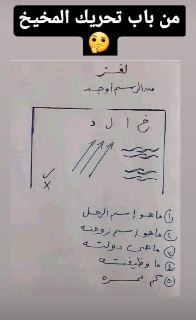 من باب تحريك المخيخ
لغز
من الرسم أوجد
خ ا ل د
① ما هو إسم الرجل
② ما هو إسم زوجته
③ ما هي دولته
④ ما وظيفته
⑤ كم عمره